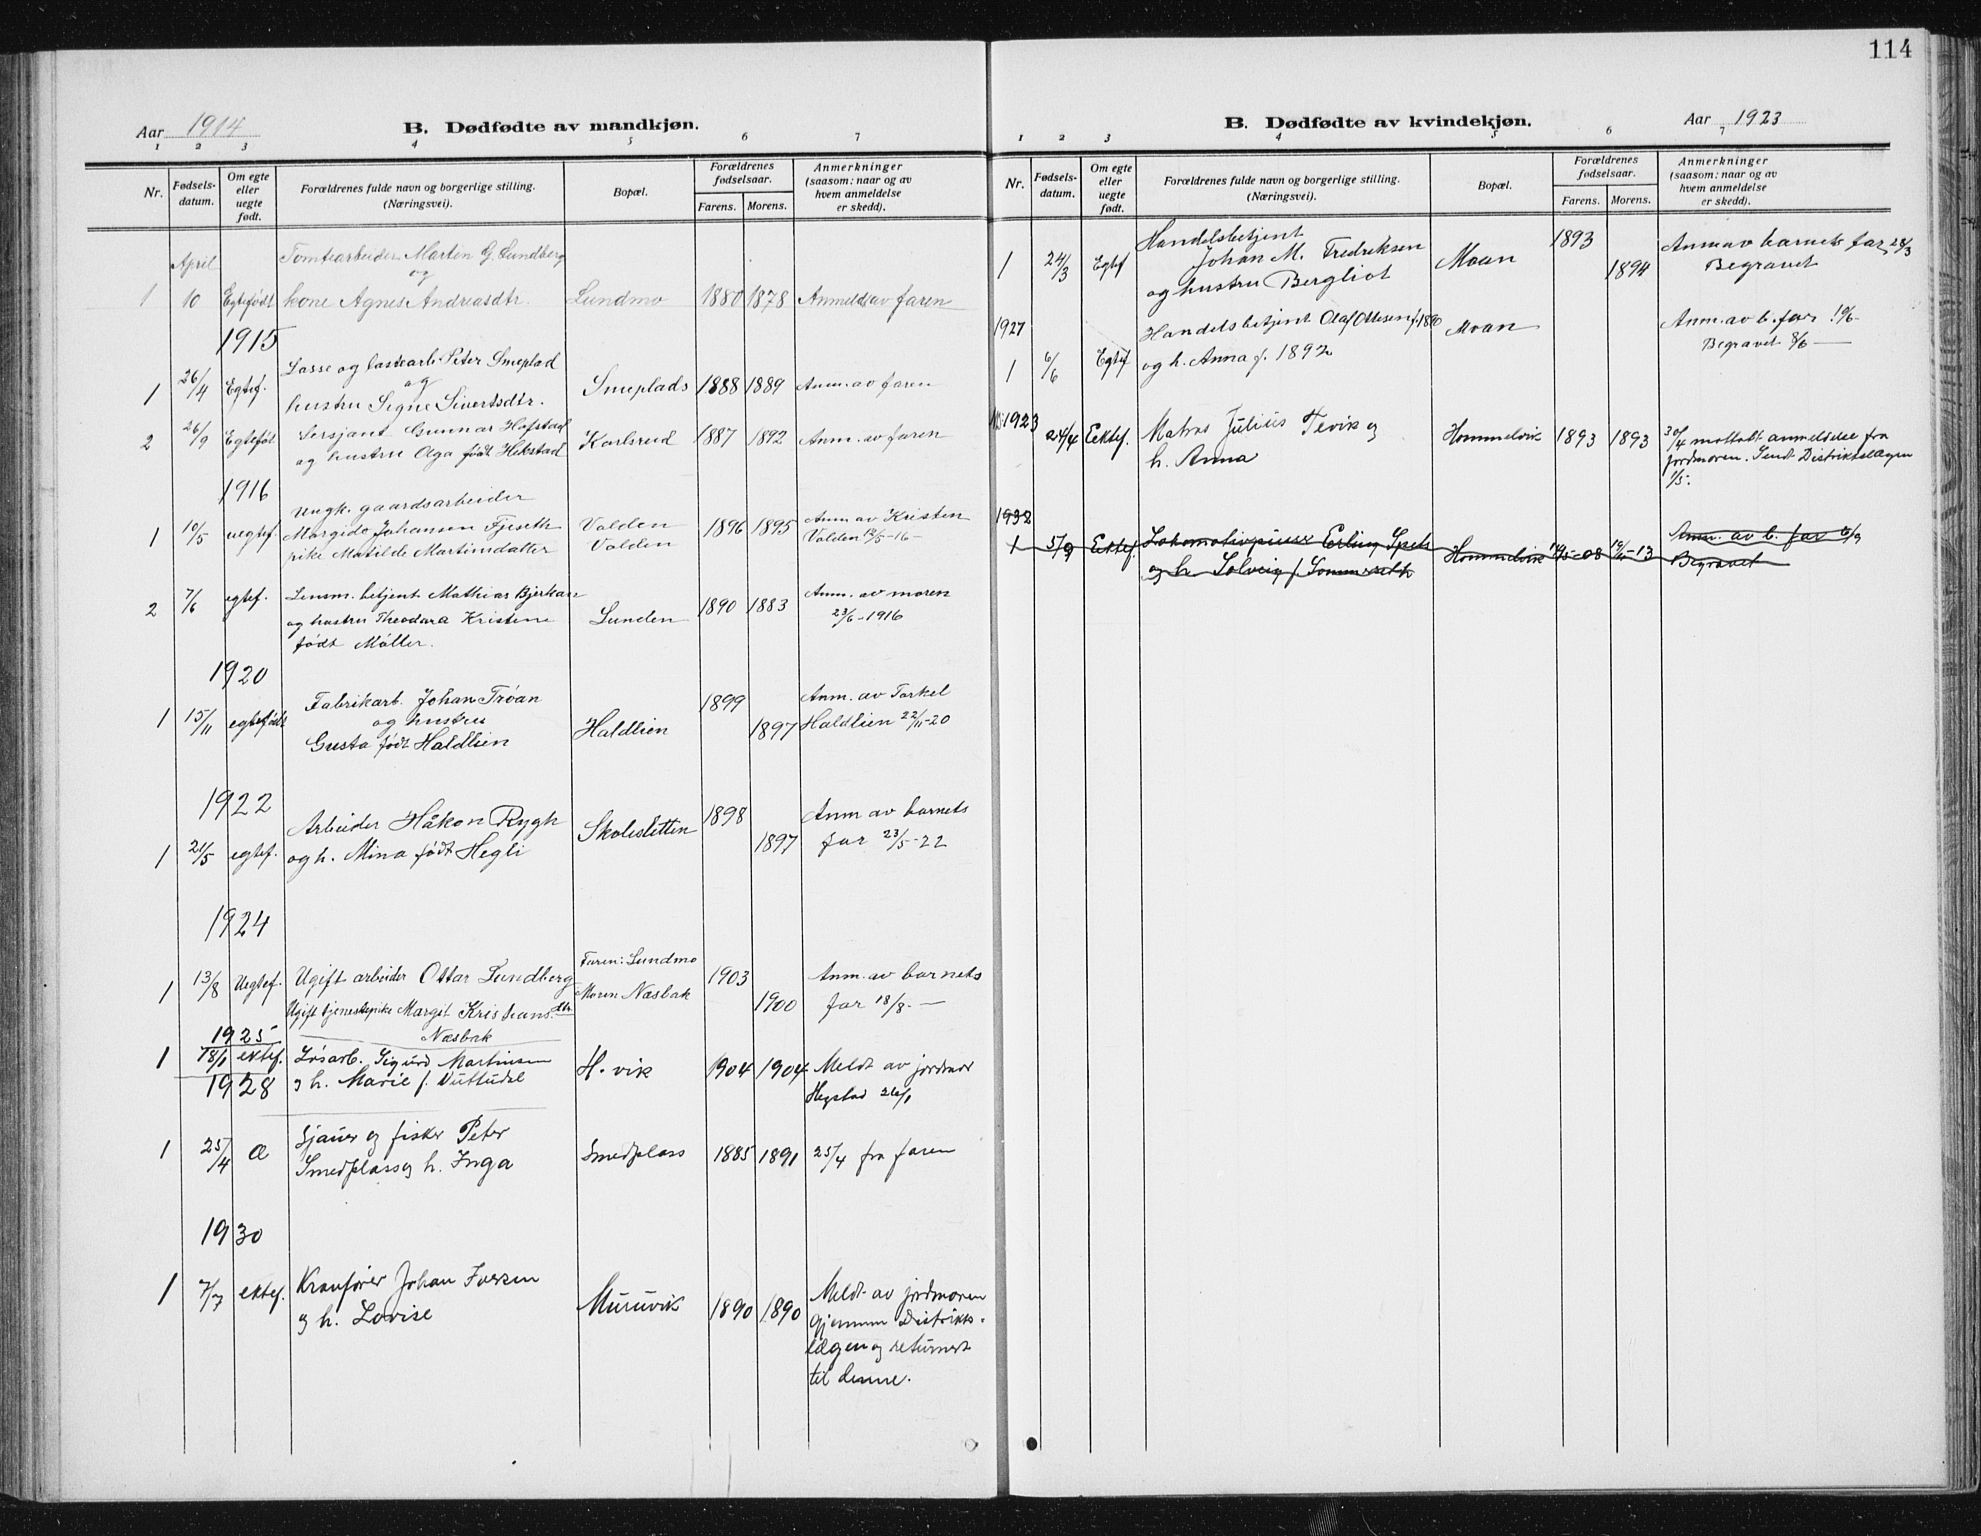 114
Aar 1914
B. Dødfødte av mandkjøn.
1 2 3 4 5 6 7
Nr.
Fødsels-
datum.
Om egte
eller
uegte
født.
Forældrenes fulde navn og borgerlige stilling.
(Næringsvei).
Bopæl.
Forældrenes
fødselsaar.
Farens. Morens.
Anmerkninger
(saasom: naar og av
hvem anmeldelse
er skedd).
April Tomtearbeider Martin G. Lundberg
og
1 10 Egtefødt kone Agnes Andreasdtr. Lundmo 1880 1878 Anmeldt av faren
1915
Losse og lastearb. Peter Smeplad
og
1 26/4 Egtef. hustru Signe Sivertsdtr. Smeplads 1888 1889 Anm. av faren
2 26/9 Egteføt Sersjant Gunnar Hofstad
og hustru Olga født Hekstad Karlsrud 1887 1892 Anm. av faren
1916
Ungk. gaardsarbeider
1 10/5 uegtef. Margido Johansen Fjeseth Valden 1896 1895 Anm. av Kristen
pike Matilde Martinsdatter Valden Valden 12/5-16-
2 7/6 egtef. Lensm. betjent Mathias Bjerkan
og hustru Theodora Kristine
født Möller. Lunden 1890 1883 Anm. av moren
23/6-1916
1920
1 15/11 egtefødt Fabrikarb. Johan Trøan
og hustru
Gusta født Haldlien Haldlien 1899 1897 Anm. av Torkel
Haldlien 22/11-20
1922
1 21/5 egtef. Arbeider Håkon Rygh
og h. Mina født Hegli Skolesletten 1898 1897 Anm av barnets
far 23/5-22
1924
1 13/8 Uegtef. Ugift arbeider Ottar Lundberg Faren: Lundmo 1903 Anm. av barnets
Ugift tjenestepike Margit Kristians.dtr. Moren Næsbak 1900 far 18/8.-
Næsbak
1925
1 18/1 ektef. Løsarb. Sigurd Martinsen
og h. Marie f. Vuttudal H.vik 1904 1904 Meldt av jordmor
Hegstad 26/1
1928
1 25/4 Æ Sjauer og fisker Peter
Smedplass og h. Inga Smedplass 1885 1891 25/4 fra faren
1930
1 7/7 ektef. Kranfører Johan Iversen
og h. Lovise Muruvik 1890 1890 Meldt av jordmoren
gjennem Distrikts-
lægen og returnert
til denne.
B. Dødfødte av kvindekjøn.
Aar 1923
1 2 3 4 5 6 7
Nr.
Fødsels-
datum.
Om egte
eller
uegte
født.
Forældrenes fulde navn og borgerlige stilling.
(Næringsvei).
Bopæl.
Forældrenes
fødselsaar.
Farens. Morens.
Anmerkninger
(saasom: naar og av
hvem anmeldelse
er skedd).
1 24/3 Egtef Handelsbetjent
Johan M. Fredriksen
og hustru Bergliot Moan 1893 1894 Anm av barnets far 28/3
Begravet
1927
1 6/6 Egtef Handelsbetjent Olaf Ottesen f. 1890
og h. Anna f. 1892 Moan Anm. av b. far
Begravet 8/6 -
1923
24/4 Eektef. Matros Julius Tevik og
h. Anna Hommelvik 1893 1893 30/4 mottatt anmeldelse fra
jordmoren. Sendt Distriktslægen
1/5.
1932
1 5/9 Ektef. Lokomotivpusser Erling Spets
og h. Solveig f. Sommerseth Hommelvik -08 -13 Anm. av b. far 6/9
Begravet